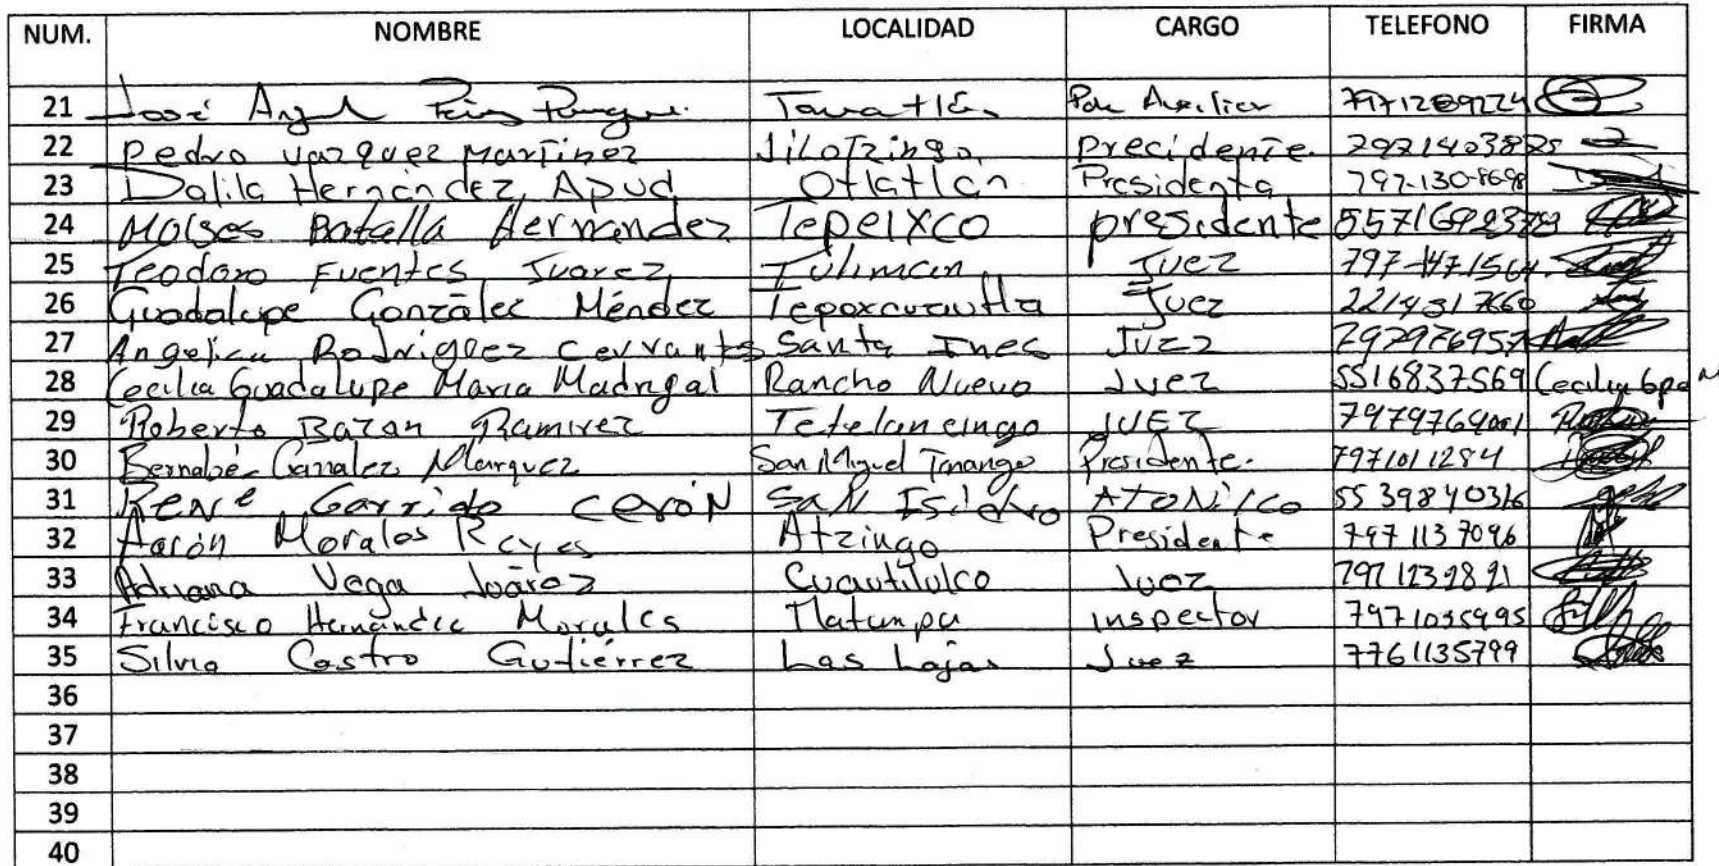 NUM. NOMBRE LOCALIDAD CARGO TELEFONO FIRMA
21 José
22 Pedro vazquez MarTinez JiloTzingo. precidenTe.
23 Dalila Hernández Apud Otlatlán Presidenta 797-130-8698
24 Moises Batalla Hernandez Tepeixco presidente
25 Teodoro Fuentes Juarez Tulimán Juez 797-1471564.
26 Guadalupe González Méndez Tepoxcuautla Juez 2214317660
27 Angelica Rodriguez Cervantes Santa Ines Juez 797976957
28 Cecilia Guadalupe Maria Madrigal Rancho Nuevo Juez 5516837569 Cecilia Gpe M
29 Roberto Bazan Ramirez Tetelancingo JUEZ 7979769001
30 Bernabé Gonzalez Marquez San Miguel Tenango Presidente. 7971011284
31 Rene Garrido cerón SaN Isidro AToNilco 5539840316
32 Aarón Morales Reyes Atzingo Presidente 7971137096
33 Adriana Vega Juárez Cuautilulco Juez 7971232821
34 Francisco Hernández Morales Tlatempa inspector 7971035995
35 Silvia Castro Gutiérrez Las Lajas Juez 7761135799
36
37
38
39
40